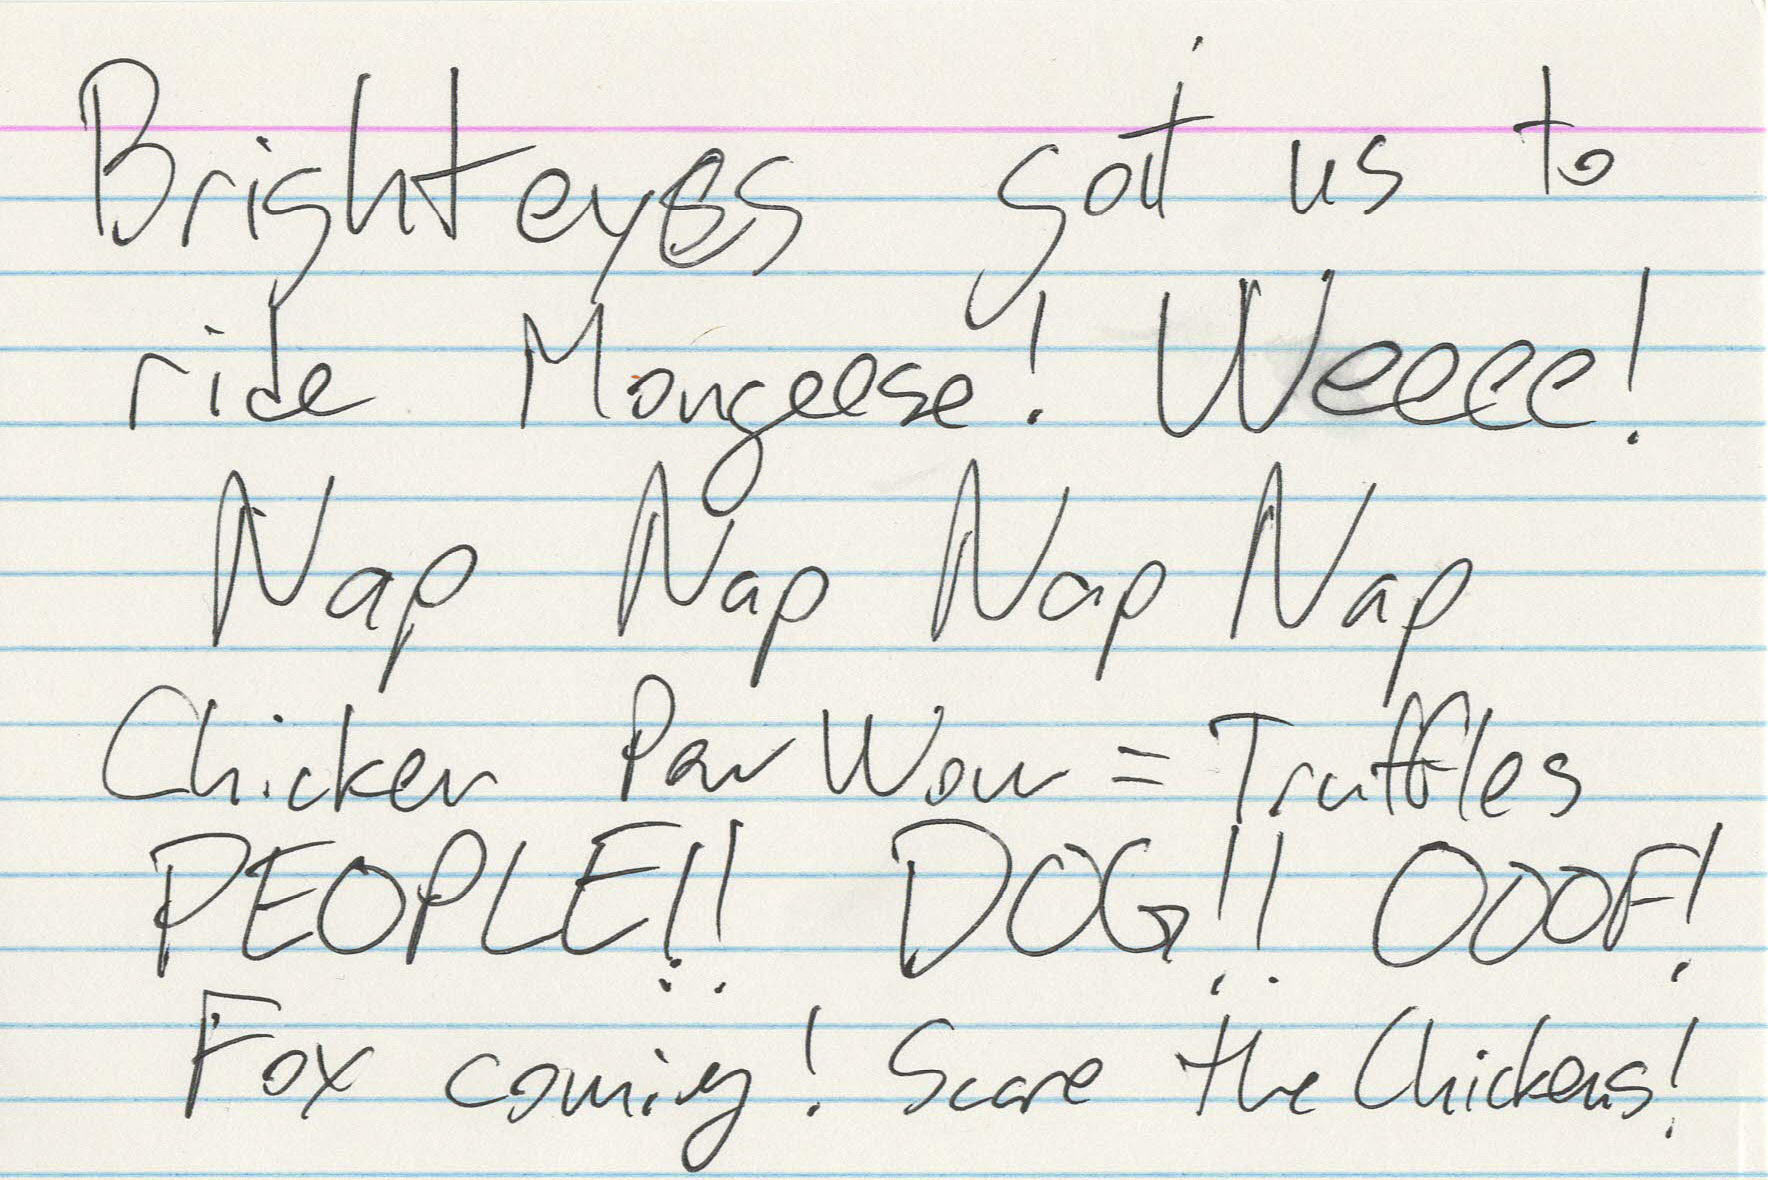 Brighteyes got us to
ride Mongeese! Weeee!
Nap Nap Nap Nap
Chicken Pow Wow = Truffles
PEOPLE!! DOG!! OOOF!
Fox coming! Scare the Chickens!